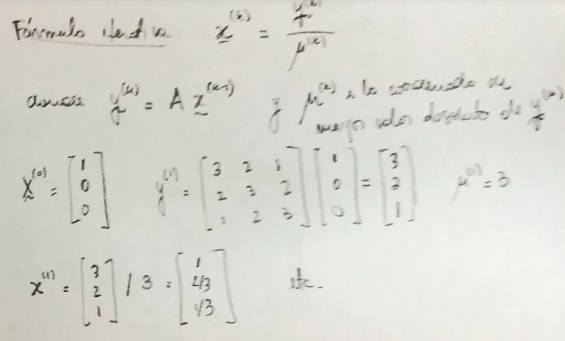 Fórmula iterativa x^(k) = y^(k) / μ^(k)
donde y^(k) = A x^(k-1) y μ^(k) es la coordenada de
mayor valor absoluto de y^(k)
x^(0) = [1 0 0] y^(1) = [3 2 1; 2 3 2; 1 2 3] [1 0 0] = [3 2 1] μ^(1) = 3
x^(1) = [3 2 1] / 3 = [1 2/3 1/3] etc.